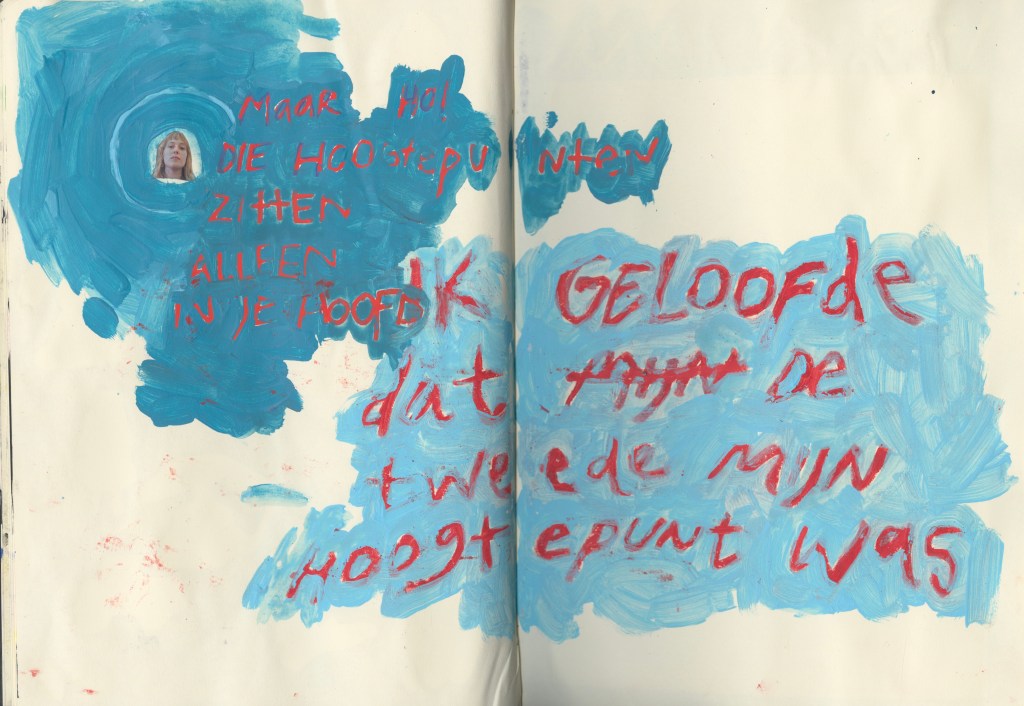 MAAR HO!
DIE HOOGTEPUNTEN
ZITTEN
ALLEEN
IN JE HOOFD
IK GELOOFDE
dat DE
tweede MIJN
HOOGTEPUNT WAS